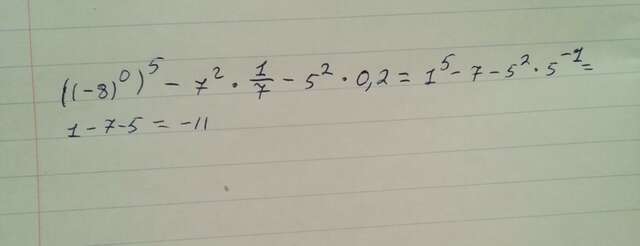 ((-8)⁰)⁵ - 7² · 1/7 - 5² · 0,2 = 1⁵ - 7 - 5² · 5⁻¹ =
1 - 7 - 5 = -11